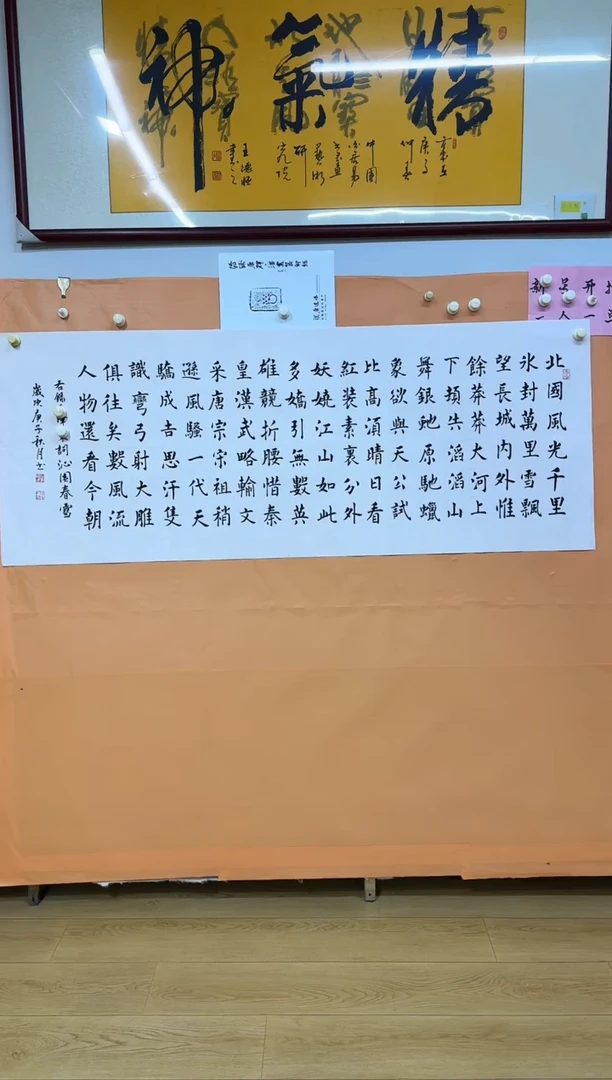 精氣神
北國風光千里
氷封萬里雪飄
望長城内外惟
餘莽莽大河上
下頓失滔滔山
舞銀虵原馳蠟
象欲與天公試
比高湏晴日看
紅装素裹分外
妖嬈江山如此
多嬌引無數英
雄競折腰惜秦
皇漢武略輸文
采唐宗宋祖稍
遜風騷一代天
驕成吉思汗隻
識彎弓射大雕
俱往矣數風流
人物還看今朝
右錄詞沁園春雪
歲次庚子秋月